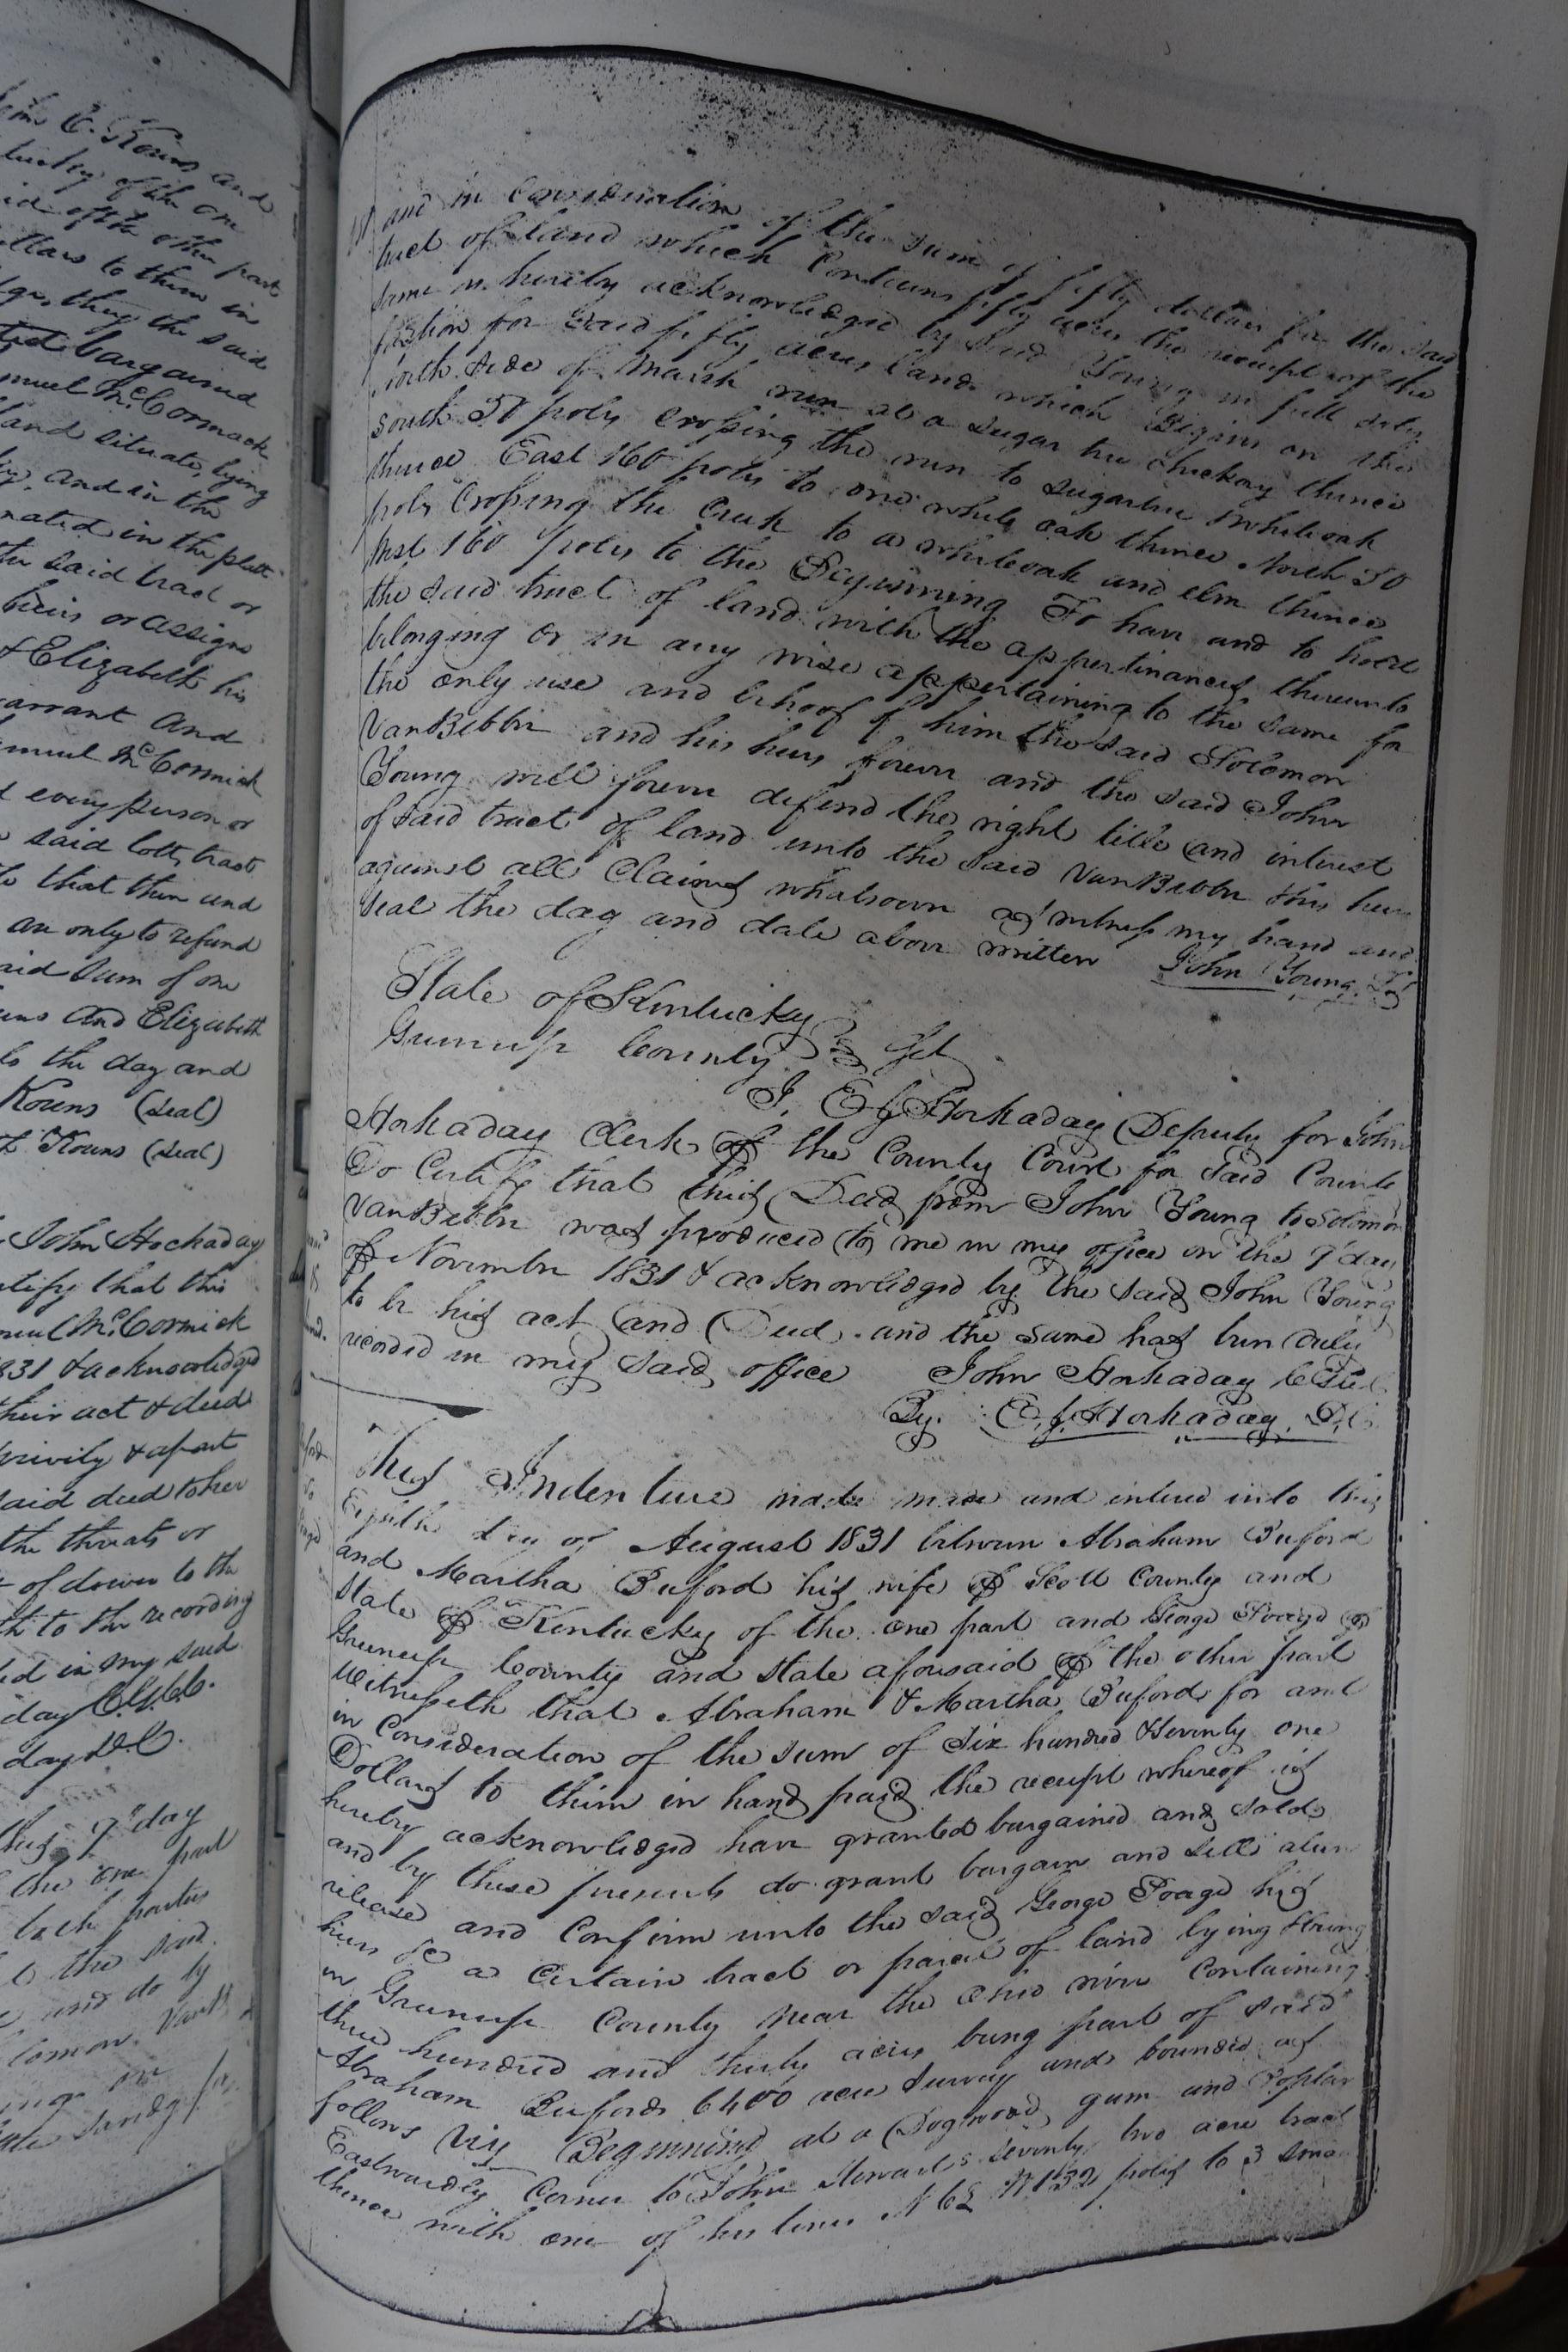 hn C. Kouns and
tucky of the one
id of the other part
ollars to them in
the said
ted bargained
muel McCormack
land situate, lying
and in the
nated in the platt
the said trad or
heirs or assigns
& Elizabeth his
arrant and
muel McCormick
d every person or
said lott, tract
to that then and
are only to refund
aid sum of one
uns and Elizabeth
to the day and
Kouns (Seal)
Kouns (Seal)
John Hockaday
rtify that this
muel McCormick
831 & acknowledged
their act & deed
privily & apart
said deed to her
the threats or
of dower to the
th to the recording
ed in my said
day C.G.C.C.
day D.C.
this 7th day
the one part
both parties
the said
and do by
lomon VanB
and in consideration of the sum of fifty dollars for the said
tract of land which contains fifty acres the receipt of the
same is hereby acknowledged by said Young in full satis
faction for said fifty acres land which Begins on the
north side of Marsh run at a sugar tree hickory thence
south 50 poles crossing the run to sugartree whiteoak
thence East 160 poles to one white oak thence North 50
poles crossing the Creek to a whiteoak and elm thence
West 160 poles to the Beginning To have and to hold
the said tract of land with the appertinances thereunto
belonging or in any wise appertaining to the same for
the only use and behoof of him the said Solomon
VanBibber and his heirs forever and the said John
Young will forever defend the right title and interest
of said tract of land unto the said VanBibber & his heirs
against all Claims whatsoever as witness my hand and
seal the day and date above written John Young
State of Kentucky
Greenup County Sct
I, E G Hockaday Deputy for John
Hockaday Clerk of the County Court for said County
Do Certify that this Deed from John Young to Solomon
VanBibber was produced to me in my office on the 7th day
of November 1831 & acknowledged by the said John Young
to be his act and Deed and the same has been duly
recorded in my said office John Hockaday
By E G Hockaday D.C.
This Indenture made made and entered into this
Eighth day of August 1831 between Abraham Buford
and Martha Buford his wife of Scott County and
State of Kentucky of the one part and George Poage of
Greenup County and State aforesaid of the other part
Witnesseth that Abraham & Martha Buford for and
in Consideration of the sum of Six hundred & seventy one
Dollars to them in hand paid the receipt whereof is
hereby acknowledged have granted bargained and sold
and by these presents do grant bargain and sell alien
release and Confirm unto the said George Poage his
heirs &c a certain tract or parcel of land lying & being
in Greenup County near the Ohio river Containing
three hundred and thirty acres being part of said
Abraham Bufords 6400 acre Survey and bounded as
follows Viz Beginning at a Dogwood, gum and Poplar
Eastwardly Corner to John Stewarts seventy two acre tract
thence with one of his lines N 62 W 132 poles to 3 small